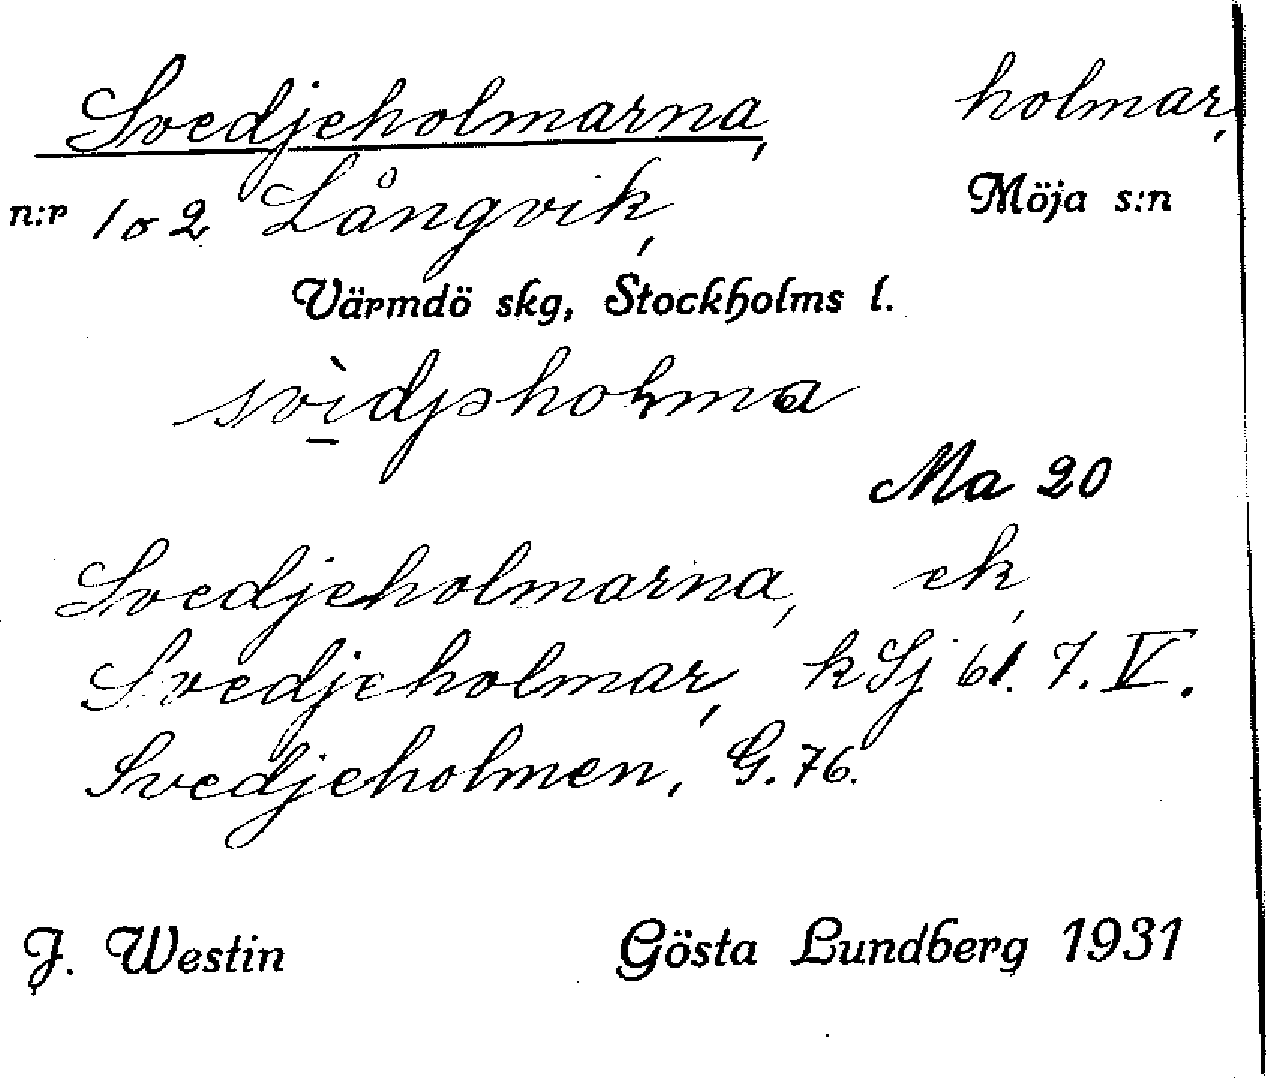 Svedjeholmarna, holmar,
n:r 1 o 2 Långvik, Möja s:n
Värmdö skg, Stockholms l.
svìdjəholma
Ma 20
Svedjeholmarna, ek,
Svedjeholmar, kSj bl. 7. V.
Svedjeholmen, G. 76.
J. Westin Gösta Lundberg 1931